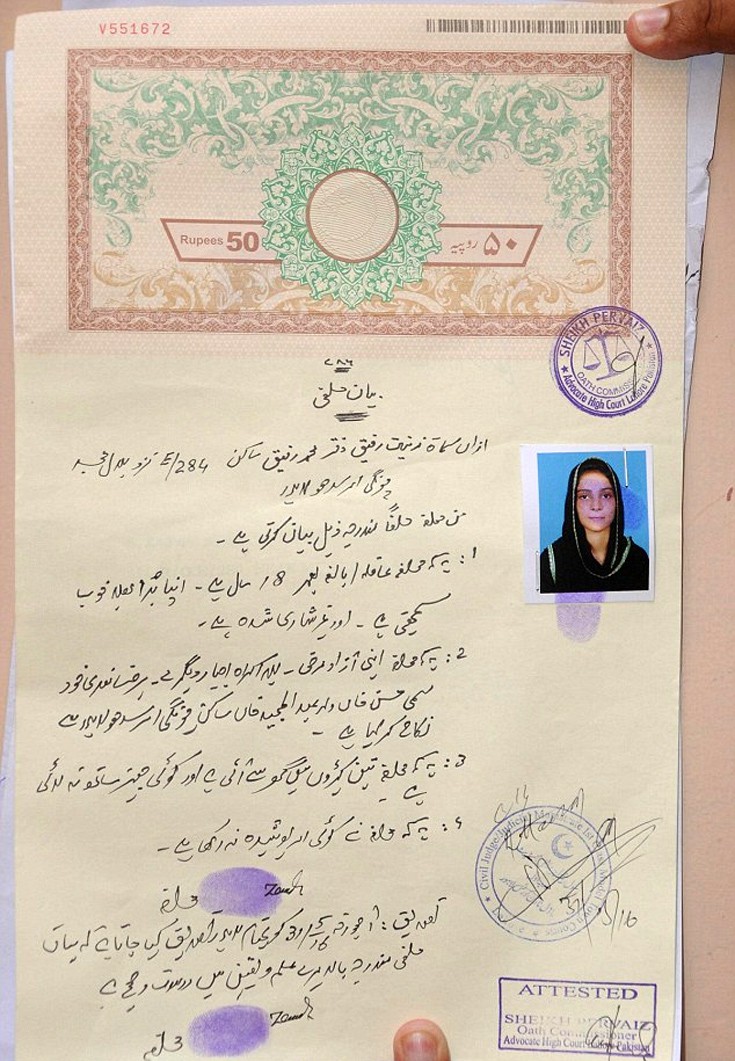 V551672
Rupees 50
۵۰ روپیہ
SHEIKH PERVAIZ
OATH COMMISSIONER
Advocate High Court Lahore Pakistan
۷۸۶
بیان حلفی
ازاں مسماۃ زینت رفیق دختر محمد رفیق ساکن 284/E نزد بلال مسجد
چونگی امرسدھو لاہور
من حلفہ حلفاً مندرجہ ذیل بیان کرتی ہے۔
1: یہ کہ محلفہ عاقلہ / بالغ بعمر 18 سال ہے۔ اپنا برا بھلا خوب
سمجھتی ہے۔ اور غیر شادی شدہ ہے۔
2: یہ کہ محلفہ اپنی آزاد مرضی۔ بلا اکراہ اجبار دیگرے۔ برضامندی خود
مسمی حسن خاں ولد عبدالمجید خاں ساکن چونگی امرسدھو لاہور سے
نکاح کر لیا ہے۔
3: یہ کہ محلفہ تین کپڑوں میں گھر سے آئی ہے اور کوئی چیز ساتھ نہ لائی
ہے
4: یہ کہ محلفہ نے کوئی امر پوشیدہ نہ رکھا ہے۔
محلفہ
Civil Judge/Judicial Magistrate Ist Class Model Town
تصدیق: آج مورخہ کو بمقام لاہور تصدیق کیا جاتا ہے کہ بیان
حلفی مندرجہ بالا میرے علم و یقین میں درست و صحیح ہے
محلفہ
ATTESTED
SHEIKH PERVAIZ
Oath Commissioner
Advocate High Court Lahore Pakistan